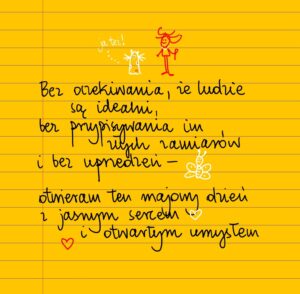 ja też!
Bez oczekiwania, że ludzie
są idealni,
bez przypisywania im
złych zamiarów
i bez uprzedzeń –
otwieram ten majowy dzień
z jasnym sercem
i otwartym umysłem